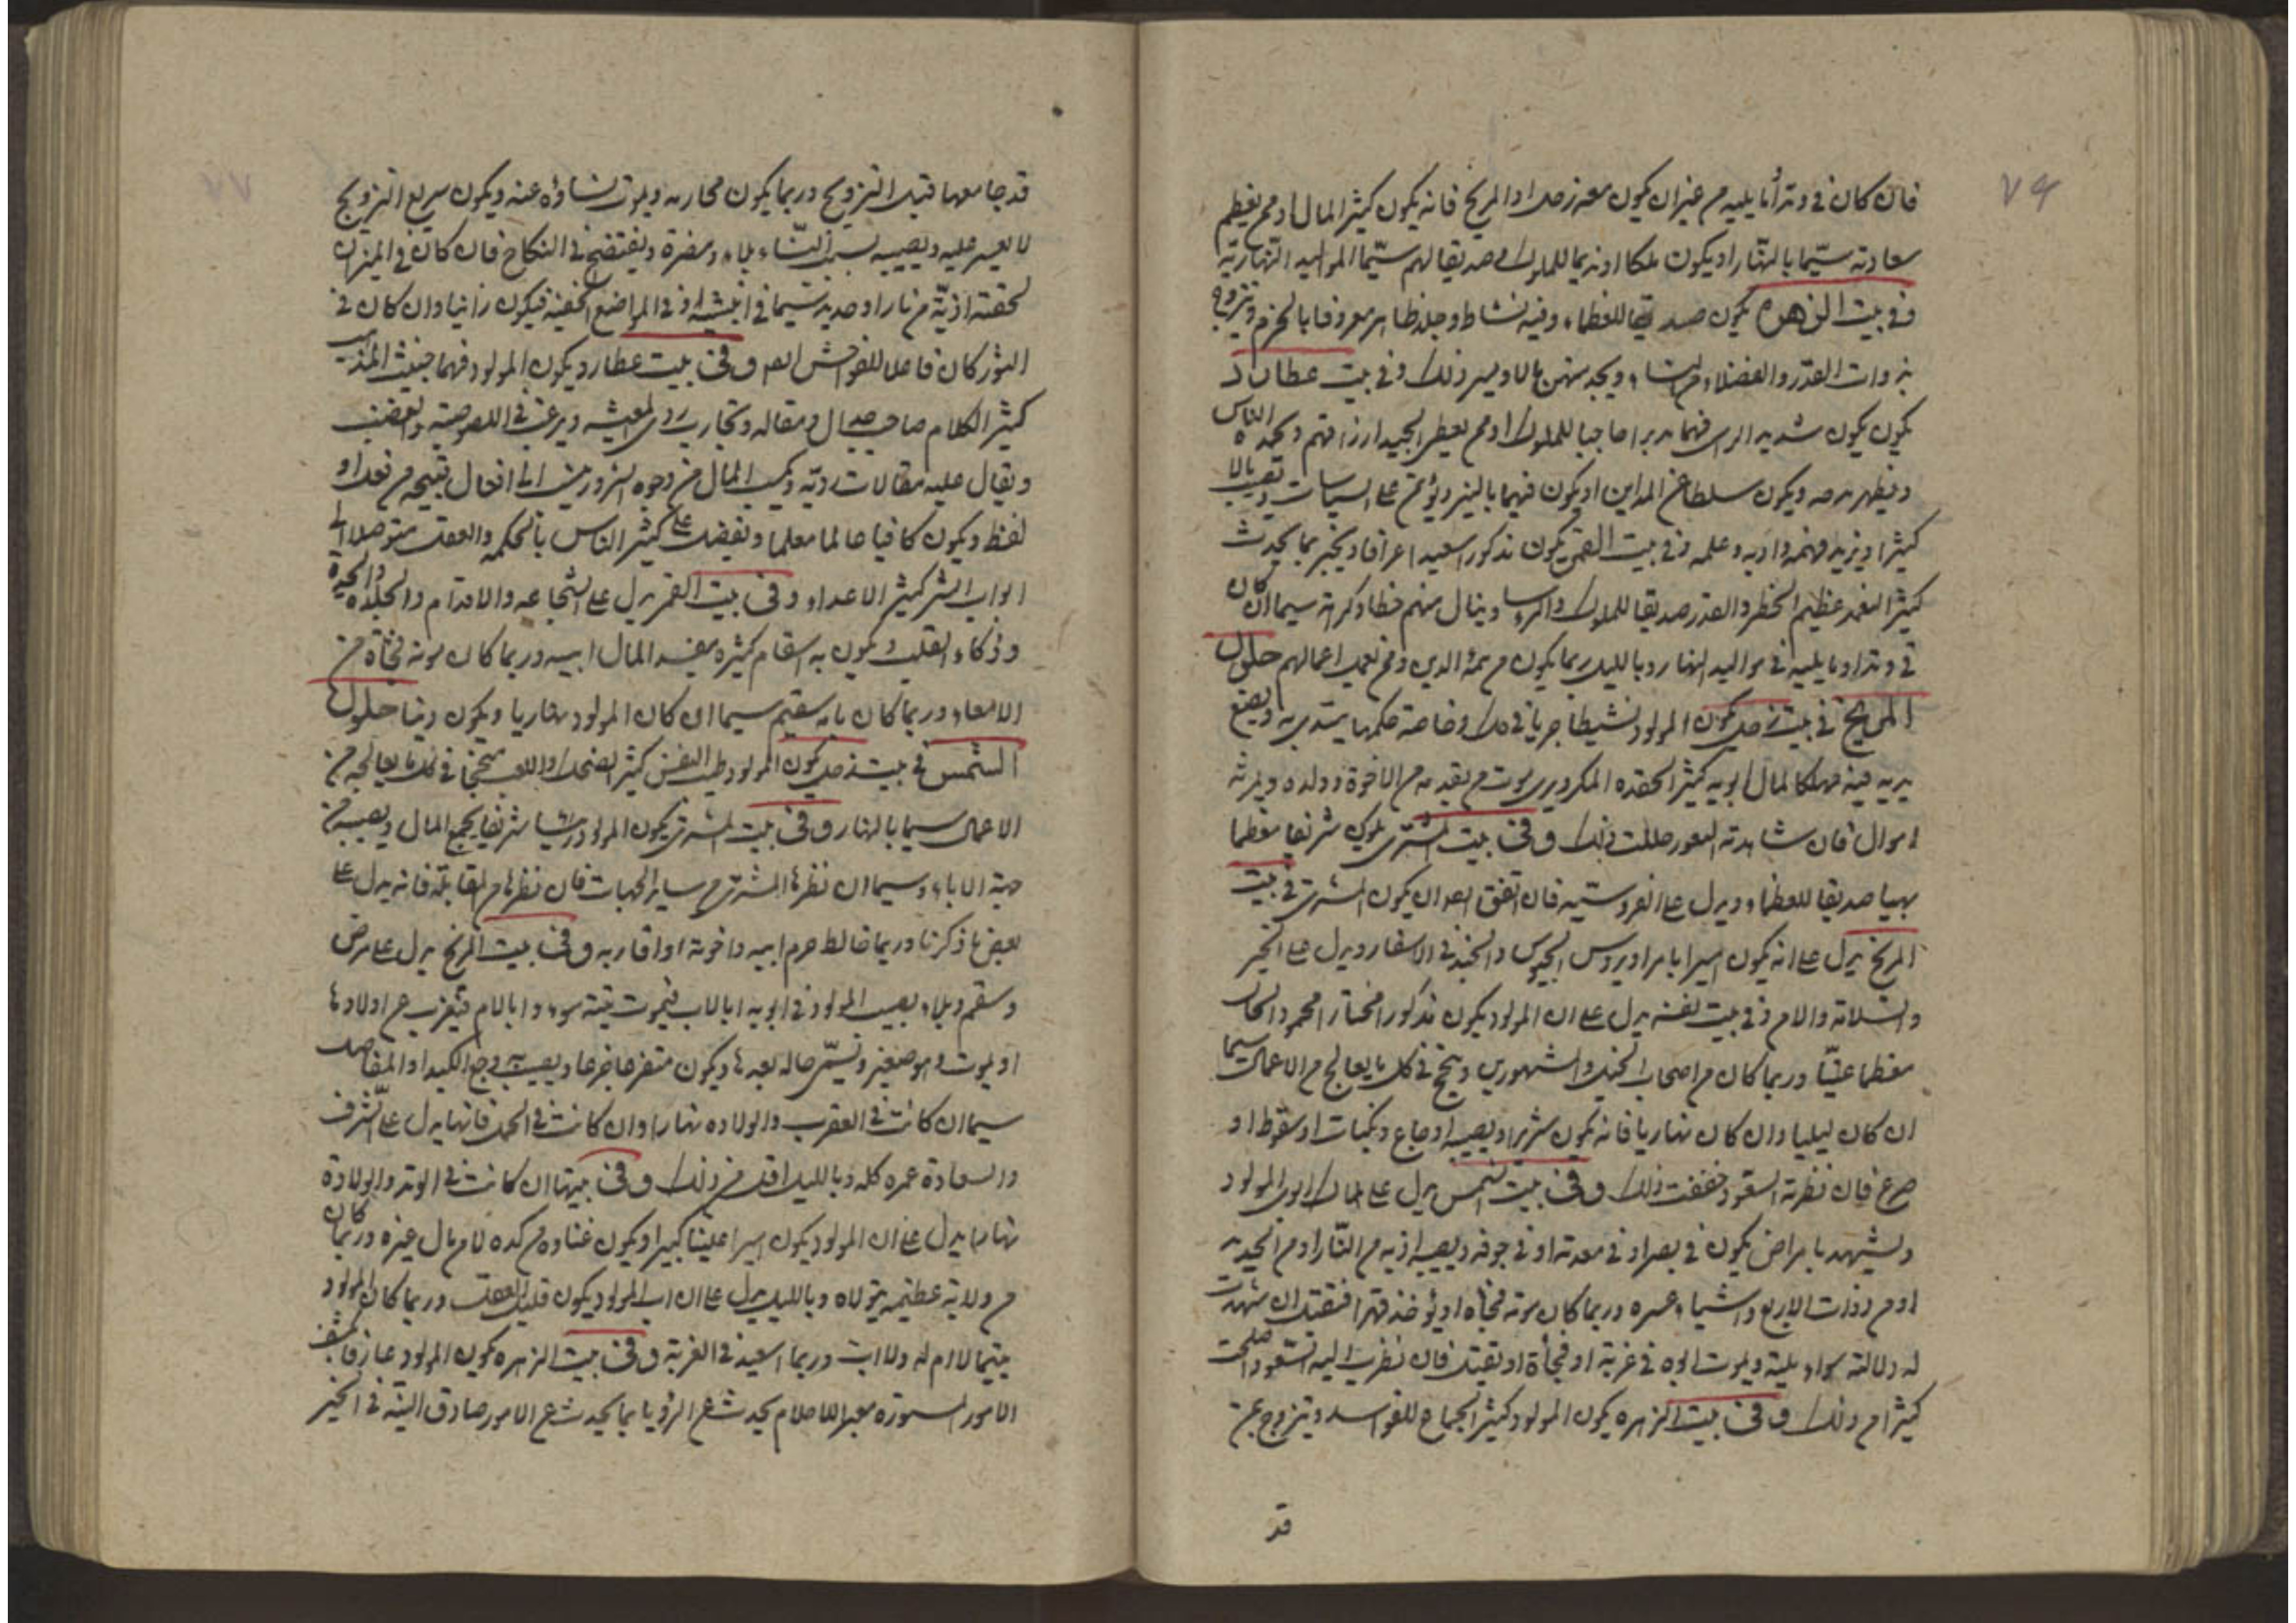 ٧٦
فان كان في وتد أو ما يليه من غير ان يكون معه زحل او المريخ فانه يكون كثير المال او ممن يعظم
سعادته سيّما بالنهار او يكون ملكا او نديما للملوك او صديقا لهم سيّما المواليد النّهاريّة
وفي بيت الزهرة يكون صديقا للعظماء وفيه نشاط وجلد ظاهر معروفا بالحزم ويتزوج
بذوات القدر والفضلاء من النساء ويجد منهن مالا ويسر ذلك وفي بيت عطارد
يكون يكون شديد الراي فهما مدبرا حاجبا للملوك او ممن يعطي الجند ارزاقهم ويحمده الناس
ويظهر مدحه ويكون سلطا المداين او يكون فهيما ويؤتمن على السياسات ويصيب مالا
كثيرا ويزيد فهمه وادبه وعلمه وفي بيت القمر يكون مذكورا سعيدا عرافا ويخبر بما يحدث
كثير العمد عظيم الخطر والقدر صديقا للملوك والرؤسا وينال منهم حظا وكرامة سيما ان كان
في وتد او ما يليه في مواليد النهار وبالليل ربما يكون من ائمة الدين وممن يعمل اعمالهم حلول
المريخ في بيت زحل يكون المولود نشيطا جريا في ويصنع
مهلكا لمال ابويه كثير الحقده المكر ويرى موت من تقدمه من الاخوة وولده ويرث
اموال فان شاهدته السعود حللت ذلك وفي بيت المشتري يكون شريفا معظما
بهيا صديقا للعظماء ويدل على الفروسية فان اتفق ان يكون المشتري في بيت
المريخ يدل على انه يكون اميرا الجيوش والجند في الاسفار ويدل على الخير
والسلامة وفي بيت نفسه يدل على ان المولود يكون مذكورا مختارا محمود الحال
معظما غنيّا وربما كان من اصحاب الخيل والمشهورين وينجح في كل ما يعالج من الاعمال سيما
ان كان ليليا وان كان نهاريا فانه يكون شريرا ويصيبه اوجاع ونكبات او سقوط او
صرع فان نظرته السعود خففت ذلك وفي بيت الشمس يدل على هلاك ابوي المولود
ويشتهر بامراض يكون في بصره او في معدته او في جوفه ويصيبه اذيه من النّار او من الحديد
او من ذوات الاربع واشياء عسره وربما كان موته فجأة او يؤخذ قهرا فيقتل ان شهدت
له دلالته سواء بليته ويموت ابوه في غربة او فجأة او يقتل فان نظرت اليه السعود اصلحت
كثيرا من ذلك وفي بيت الزهره يكون المولود كثير الجماع للفواسد ويتزوج بمن
قد
٧٧
قد جامعها قبل التزويج وربما يكون محارمه ويموت نساؤه عنه ويكون سريع التزويج
لا يعسر عليه ويصيبه بسبب النّساء بلاء ومضرة ويفتضح في النكاح فان كان في الميزان
لحقته اذيّة من نار او حديد سيّما في انثييه او في المواضع الخفيه فيكون زانيا وان كان في
الثور كان فاعلا للفواحش وفي بيت عطارد يكون المولود فهما خبيث المذهب
كثير الكلام صاحب جدال ومقاله وتجارب ردي المعيشه ويرغب في اللصوصية والغضب
ويقال عليه مقالات رديّه ويكسب المال من وجوه افعال قبيحه من فعل او
لفظ ويكون كافيا عالما معلما ويفضل على كثير الناس بالحكمه والعقل متوصلا الى
ابواب الشر كثير الاعداء وفي بيت القمر يدل على الشجاعه والاقدام والجلده والحدة
وذكاء القلب ويكون به اسقام كثيره مفسد المال ابيه وربما كان موته فجأة من
الامعاء وربما كان سقيم سيما ان كان المولود نهاريا ويكون دنيا حلول
الشمس في بيت زحل يكون المولود طيب النفس كثير الضحك واللعب منجحا في كل ما يعالجه من
الاعمال سيما بالنهار وفي بيت المشتري يكون المولود رئيسا شريفا يجمع المال ويصيب من
جهة الاباء وسيما ان نظرها المشتري من ساير الجهات فان نظرها من المقابلة فانه يدل على
بعض ما ذكرنا وربما خالط حرم ابيه واخوته او اقاربه وفي بيت المريخ يدل على مرض
وسقم وبلاء يصيب المولود في ابويه اما بالاب فيموت ميتة سوء واما بالام فتغرب عن اولادها
او يموت وهو صغير حاله بعدها ويكون ويصيبه وجع الكبد او المفاصل
سيما ان كانت في العقرب والولاده نهارا وان كانت في الحمل فانها يدل على الشرف
والسعادة عمره كله وبالليل اقل من ذلك وفي بيتها ان كانت في الوتد والولادة
نهارا يدل على ان المولود يكون اميرا كبيرا ويكون غناوه من كده لا من مال غيره وربما كان
من ولاية عظيمه يتولاه وبالليل يدل على ان اب المولود يكون قليل العقل وربما كان المولود
يتيما لا ام له ولا اب وربما اسعد في الغربة وفي بيت الزهره يكون المولود عارفا بكشف
الامور المستوره معبرا للاحلام يحدث عن الرؤيا بما يحدث عن الامور صادق النيّة في الخير